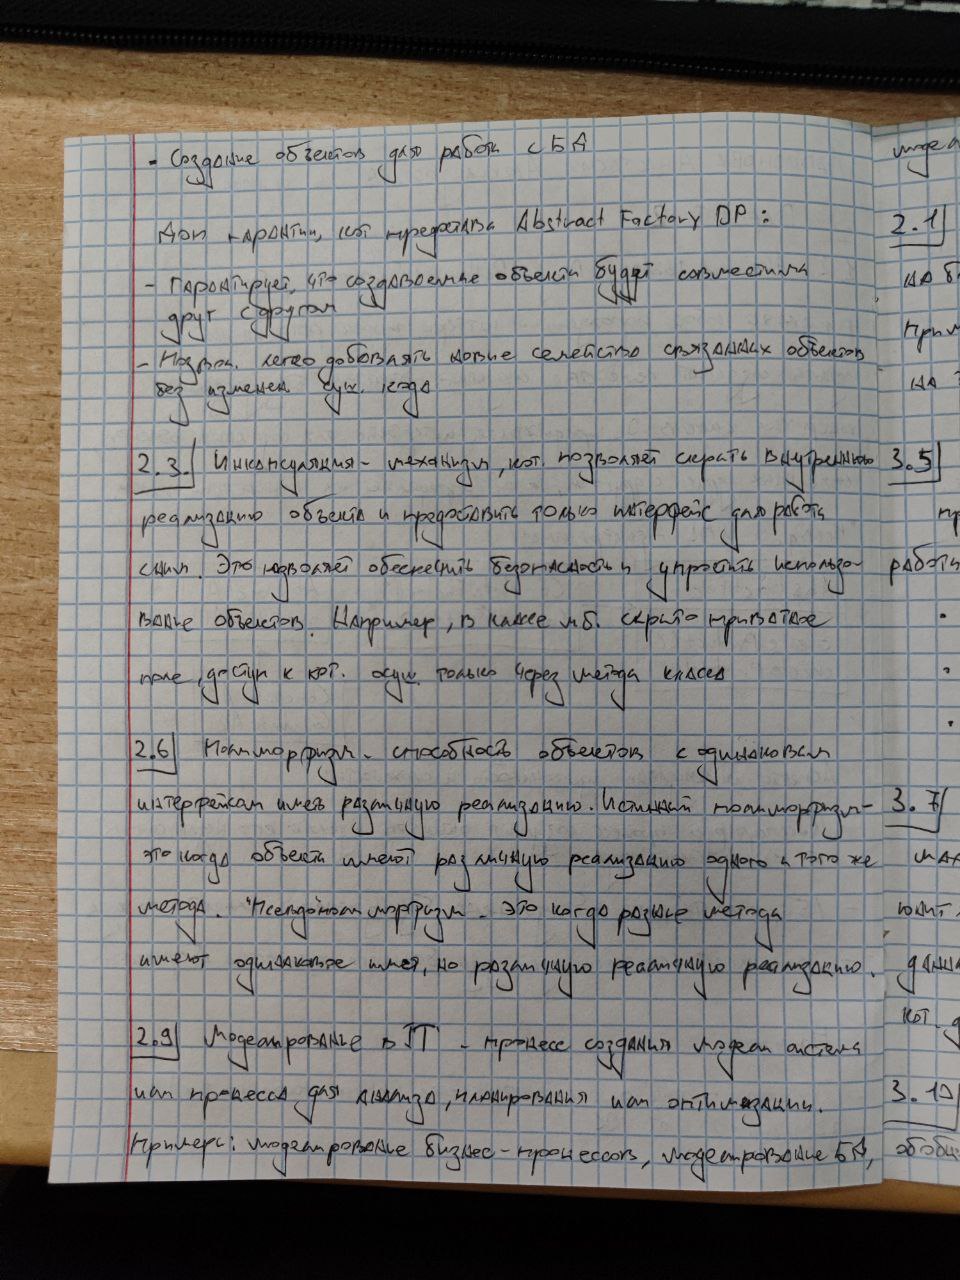 - Создание объектов для работы с БД
Доп гарантии, кот предоставл Abstract Factory DP:
- Гарантирует, что создаваемые объекты будут совместимы
друг с другом
- Позвол. легко добавлять новые семейства связанных объектов
без изменен. сущ. кода
2.3. Инкапсуляция - механизм, кот. позволяет скрыть внутреннюю
реализацию объекта и предоставить только интерфейс для работы
с ним. Это позволяет обеспечить безопасность и упростить использо-
вание объектов. Например, в классе м.б. скрыто приватное
поле, доступ к кот. осущ. только через методы класса
2.6 Полиморфизм - способность объектов с одинаковым
интерфейсом иметь различную реализацию. Истинный полиморфизм -
это когда объекты имеют различную реализацию одного и того же
метода. "Псевдополиморфизм - это когда разные методы
имеют одинаковое имя, но различную реаличную реализацию.
2.9 Моделирование в IT - процесс создания модели системы
или процесса для анализа, планирования или оптимизации.
Примеры: моделирование бизнес-процессов, моделирование БД,
2.1
НА
Прим
НА
3.5
пр
работы
3.7
юит
данн
кот. д
3.10
обобщ